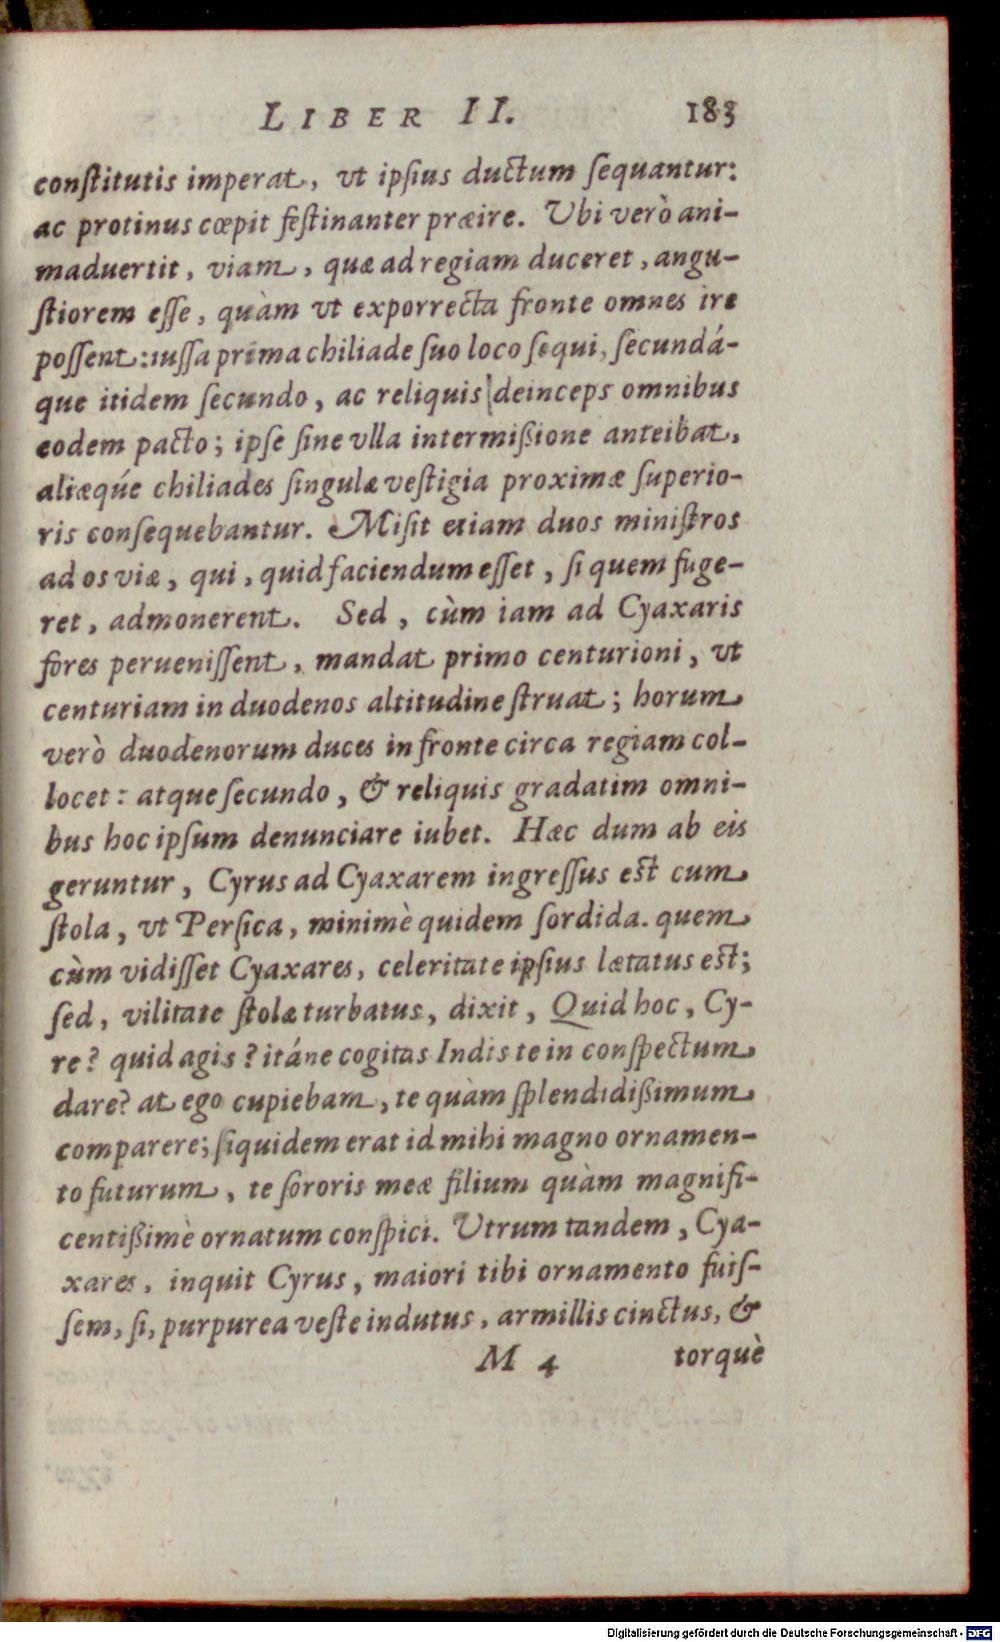 LIBER II. 183
conſtitutis imperat, vt ipſius ductum ſequantur:
ac protinus cœpit feſtinanter præire. Vbi verò ani-
maduertit, viam, quæ ad regiam duceret, angu-
ſtiorem eſſe, quàm vt exporrecta fronte omnes ire
poſſent: iuſſa prima chiliade ſuo loco ſequi, ſecundá-
que itidem ſecundo, ac reliquis deinceps omnibus
eodem pacto; ipſe ſine vlla intermißione anteibat,
aliæqúe chiliades ſingulæ veſtigia proximæ ſuperio-
ris conſequebantur. Miſit etiam duos miniſtros
ad os viæ, qui, quid faciendum eſſet, ſi quem fuge-
ret, admonerent. Sed, cùm iam ad Cyaxaris
fores perueniſſent, mandat primo centurioni, vt
centuriam in duodenos altitudine ſtruat; horum
verò duodenorum duces in fronte circa regiam col-
locet: atque ſecundo, & reliquis gradatim omni-
bus hoc ipſum denunciare iubet. Hæc dum ab eis
geruntur, Cyrus ad Cyaxarem ingreſſus eſt cum
ſtola, vt Perſica, minimè quidem ſordida. quem
cùm vidiſſet Cyaxares, celeritate ipſius lætatus eſt;
ſed, vilitate ſtolæ turbatus, dixit, Quid hoc, Cy-
re? quid agis? itáne cogitas Indis te in conſpectum
dare? at ego cupiebam, te quàm ſplendidißimum
comparere; ſiquidem erat id mihi magno ornamen-
to futurum, te ſororis meæ filium quàm magnifi-
centißimè ornatum conſpici. Vtrum tandem, Cya-
xares, inquit Cyrus, maiori tibi ornamento fuiſ-
ſem, ſi, purpurea veſte indutus, armillis cinctus, &
M 4 torquè
Digitalisierung gefördert durch die Deutsche Forschungsgemeinschaft - DFG